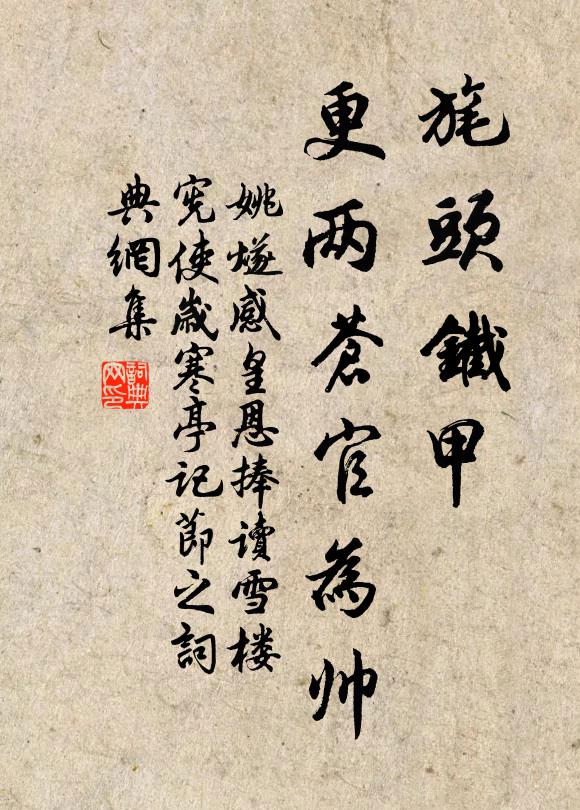 旄頭鐵甲
更两蒼官為帅
姚燧感皇恩捧读雪楼
宪使歳寒亭记節之詞
典網集
詞典网印